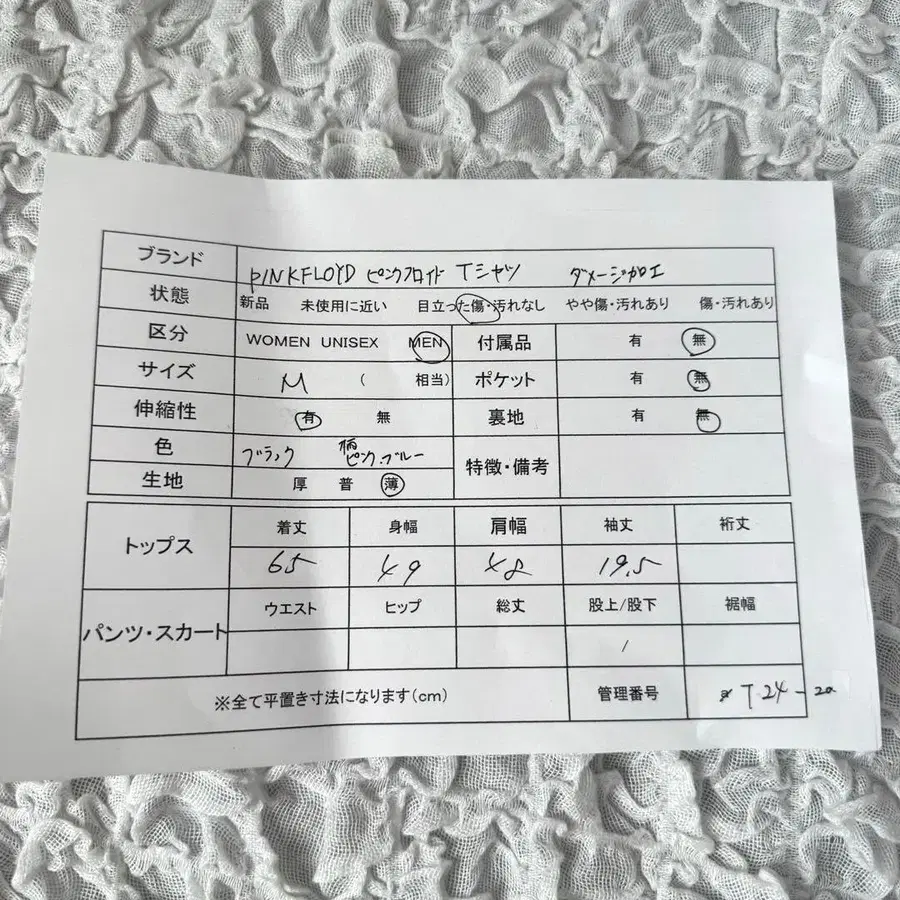 ブランド PINKFLOYD ピンクフロイド Tシャツ ダメージ加工
状態 新品 未使用に近い 目立った傷・汚れなし やや傷・汚れあり 傷・汚れあり
区分 WOMEN UNISEX MEN 付属品 有 無
サイズ M ( 相当) ポケット 有 無
伸縮性 有 無 裏地 有 無
色 ブラック 柄 ピンク.ブルー 特徴・備考
生地 厚 普 薄
トップス 着丈 身幅 肩幅 袖丈 裄丈
65 49 48 19.5
パンツ・スカート ウエスト ヒップ 総丈 股上/股下 裾幅
/
※全て平置き寸法になります(cm) 管理番号 T-24-20